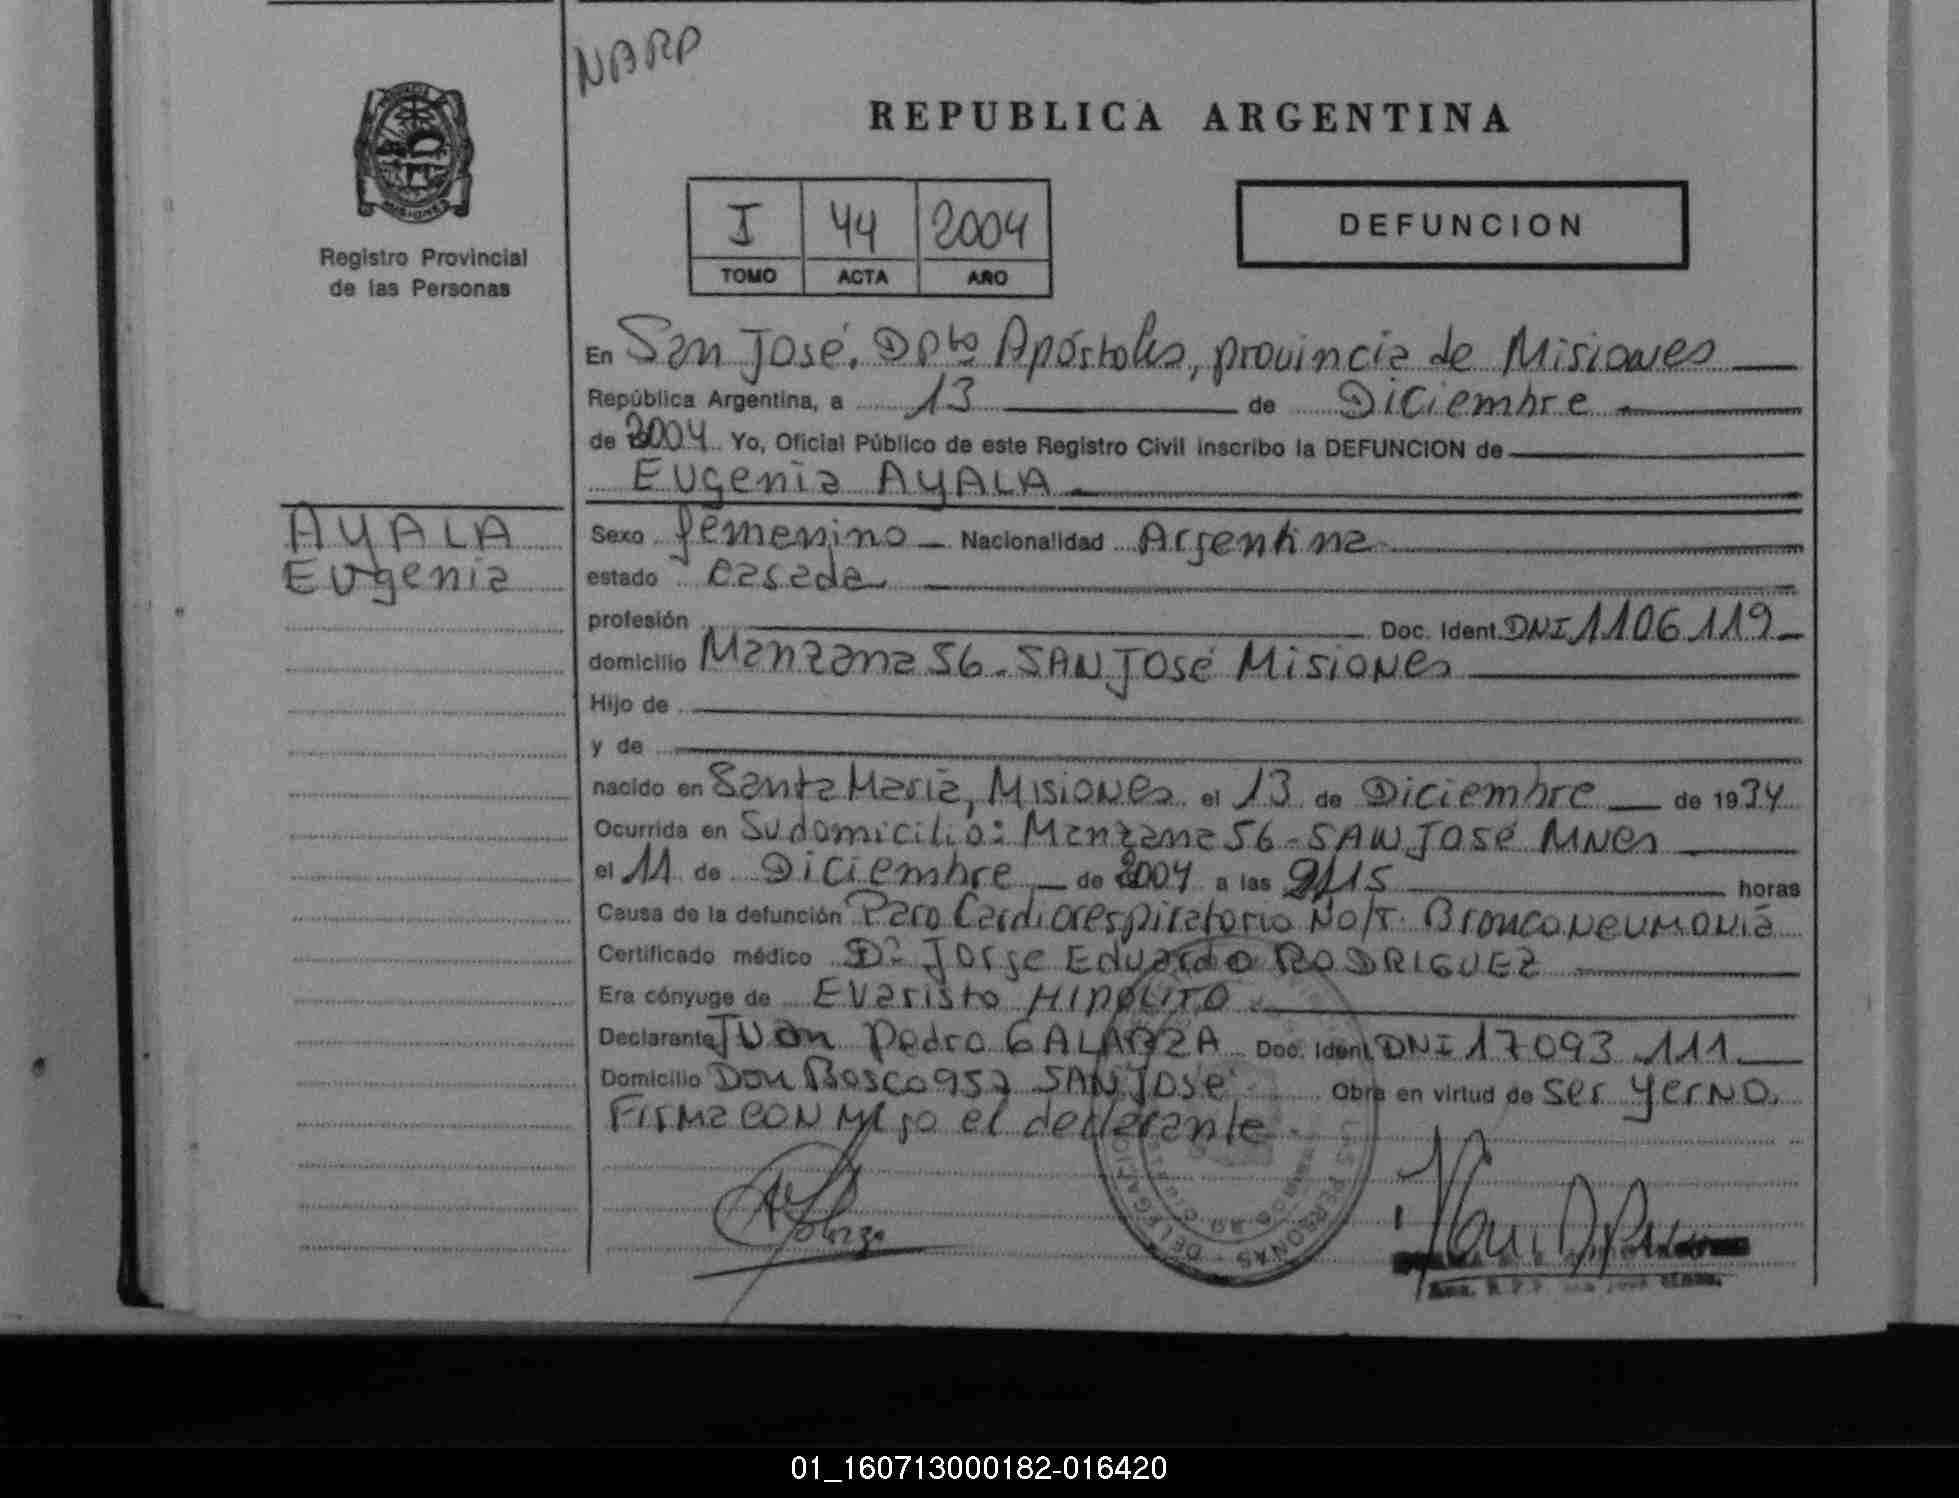 NARP
REPUBLICA ARGENTINA
MISIONES
Registro Provincial
de las Personas
I 44 2004
TOMO ACTA AÑO
DEFUNCION
En San José, Dpto Apóstoles, provincia de Misiones
República Argentina, a 13 de Diciembre
de 2004 Yo, Oficial Público de este Registro Civil inscribo la DEFUNCION de
Eugenia AYALA
AYALA
Eugenia
Sexo femenino Nacionalidad Argentina
estado casada
profesión Doc. Ident. DNI 1106119
domicilio Manzana 56 - SAN JOSé Misiones
Hijo de
y de
nacido en Santa María, Misiones el 13 de Diciembre de 1934
Ocurrida en Su domicilio: Manzana 56 - SAN JOSé MNes
el 11 de Diciembre de 2004 a las horas
Causa de la defunción Paro Cardiorespiratorio No/T. Bronconeumonía
Certificado médico Dr Jorge Eduardo RODRIGUEZ
Era cónyuge de Evaristo HIPOLITO
Declarante Juan Pedro GALARZA Doc. Ident. DNI 17093.111
Domicilio Don Bosco 957 SAN JOSé Obra en virtud de ser yerno.
Firma CON el declarante
PERSONAS - DELEGACION
01_160713000182-016420